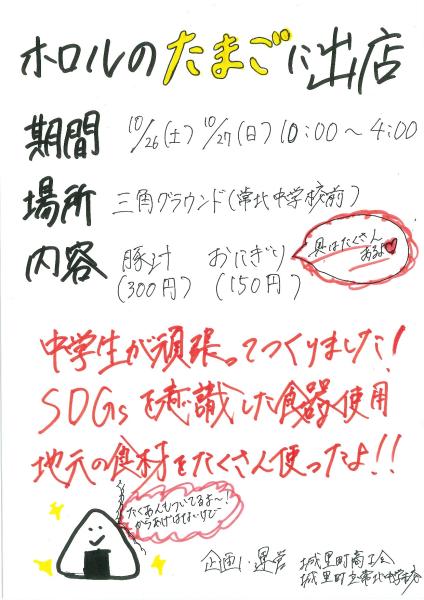 ホロルのたまごに出店
期間 10/26(土) 10/27(日) 10:00～4:00
場所 三角グラウンド(常北中学校前)
内容 豚汁 おにぎり
(300円) (150円)
具はたくさん
あるよ
中学生が頑張ってつくりました!
SDGsを意識した食器使用
地元の食材をたくさん使ったよ!!
たくあんもついてるよ〜!
からあげはないけど
企画・運営 城里町商工会
城里町立常北中学校